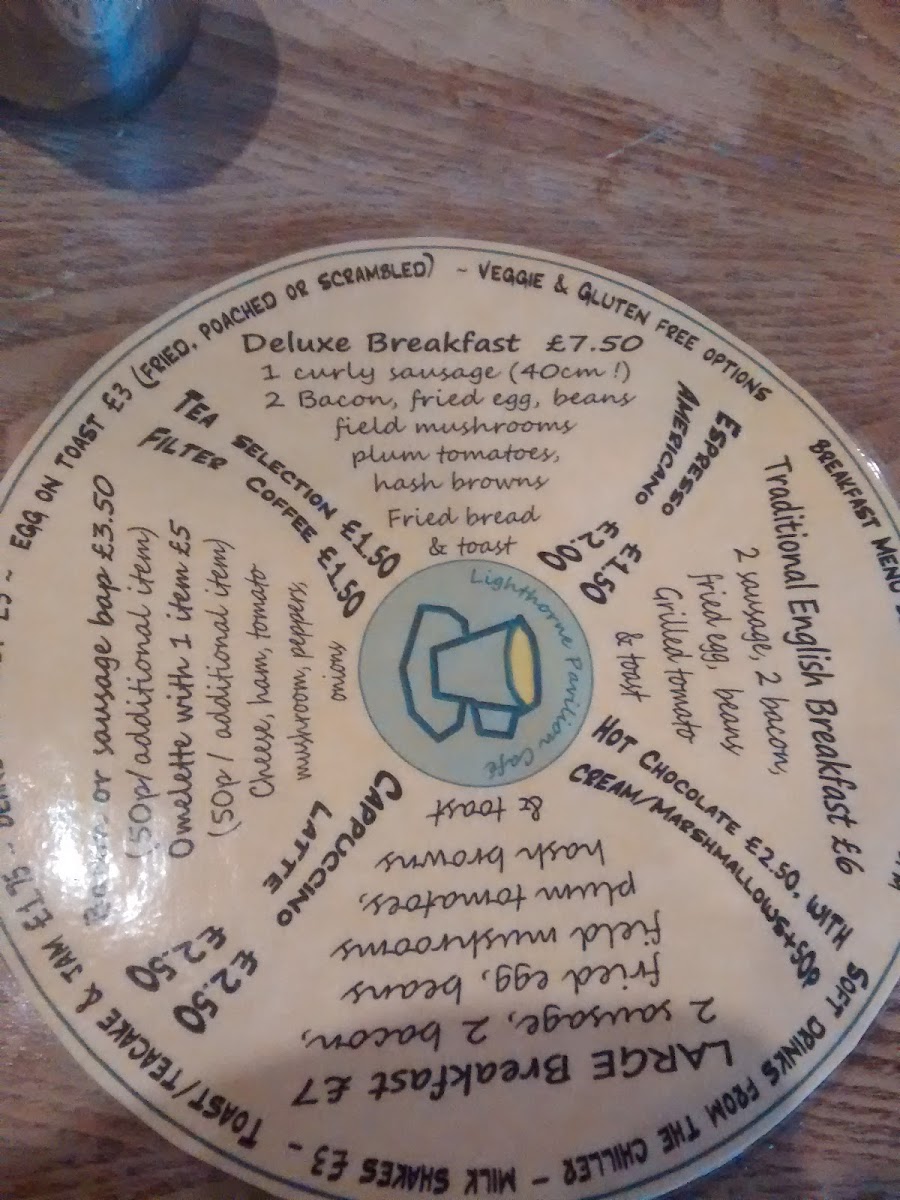 EGG ON TOAST £3 (FRIED, POACHED OR SCRAMBLED) ~ VEGGIE & GLUTEN FREE OPTIONS
BREAKFAST MENU
SOFT DRINKS FROM THE CHILLER – MILK SHAKES £3 – TOAST/TEACAKE & JAM £1.75
Deluxe Breakfast £7.50
1 curly sausage (40cm!)
2 Bacon, fried egg, beans
field mushrooms
plum tomatoes,
hash browns
Fried bread
& toast
ESPRESSO £1.50
AMERICANO £2.00
Traditional English Breakfast £6
2 sausage, 2 bacon,
fried egg, beans
Grilled tomato
& toast
HOT CHOCOLATE £2.50, WITH
CREAM/MARSHMALLOWS+50P
LARGE Breakfast £7
2 sausage, 2 bacon,
fried egg, beans
field mushrooms
plum tomatoes,
hash browns
& toast
CAPPUCCINO £2.50
LATTE £2.50
Bacon or sausage bap £3.50
(50p/additional item)
Omelette with 1 item £5
(50p / additional item)
Cheese, ham, tomato
mushroom, peppers,
onions
TEA SELECTION £1.50
FILTER COFFEE £1.50
Lighthorne Pavilion Café